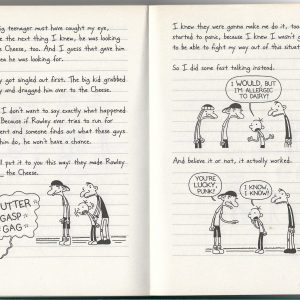 ig teenager must have caught my eye,
e the next thing I knew, he was looking
e Cheese, too. And I guess that gave him
ea he was looking for.
y got singled out first. The big kid grabbed
and dragged him over to the Cheese.
I don't want to say exactly what happened
Because if Rowley ever tries to run for
ent and someone finds out what these guys
him do, he won't have a chance.
ll put it to you this way: they made Rowley
the Cheese.
UTTER
GASP
GAG
I knew they were gonna make me do it, too.
started to panic, because I knew I wasn't go
to be able to fight my way out of this situat
So I did some fast talking instead.
I WOULD, BUT
I'M ALLERGIC
TO DAIRY!
And believe it or not, it actually worked.
YOU'RE
LUCKY,
PUNK!
I KNOW,
I KNOW!